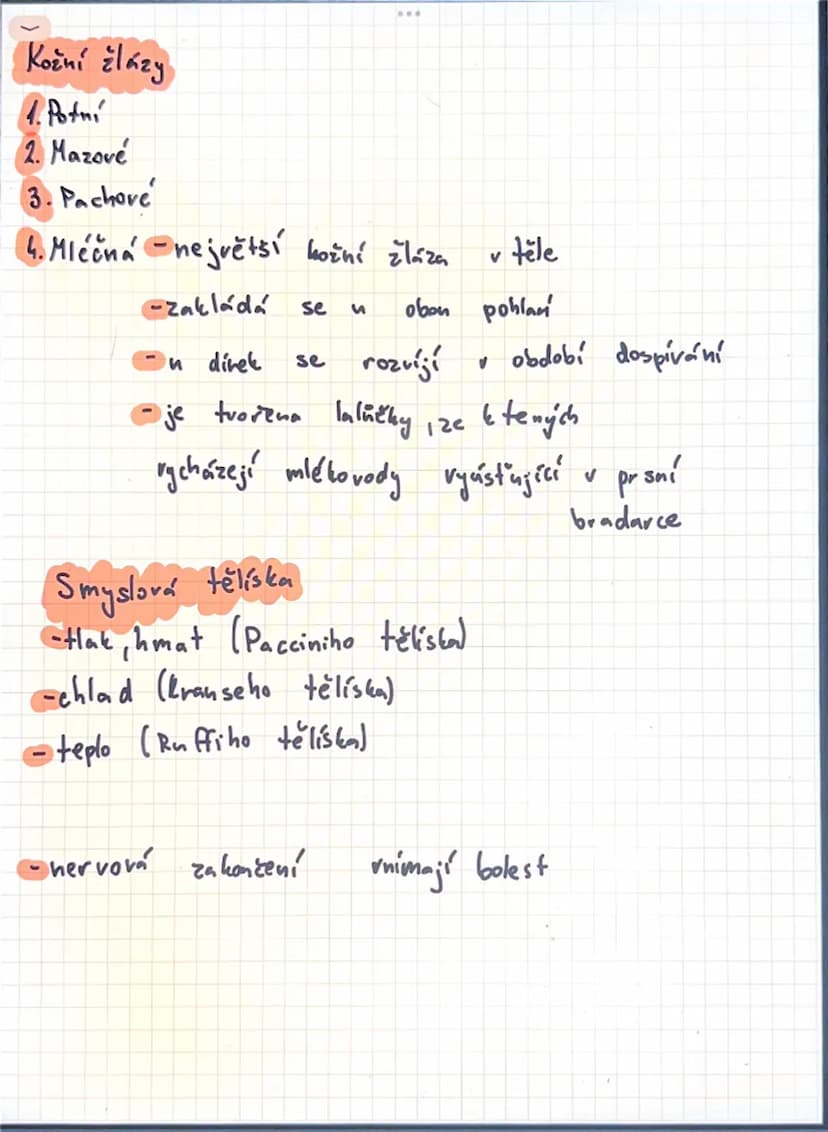 Kožní žlázy
1. Potní
2. Mazové
3. Pachové
4. Mléčná - největší kožní žláza v těle
- zakládá se u obou pohlaví
- u dívek se rozvíjí v období dospívání
- je tvořena lalůčky, ze kterých
vycházejí mlékovody vyúsťující v prsní
bradavce
Smyslová tělíska
- tlak, hmat (Pacciniho tělíska)
- chlad (Krauseho tělíska)
- teplo (Ruffiho tělíska)
- nervová zakončení vnímají bolest